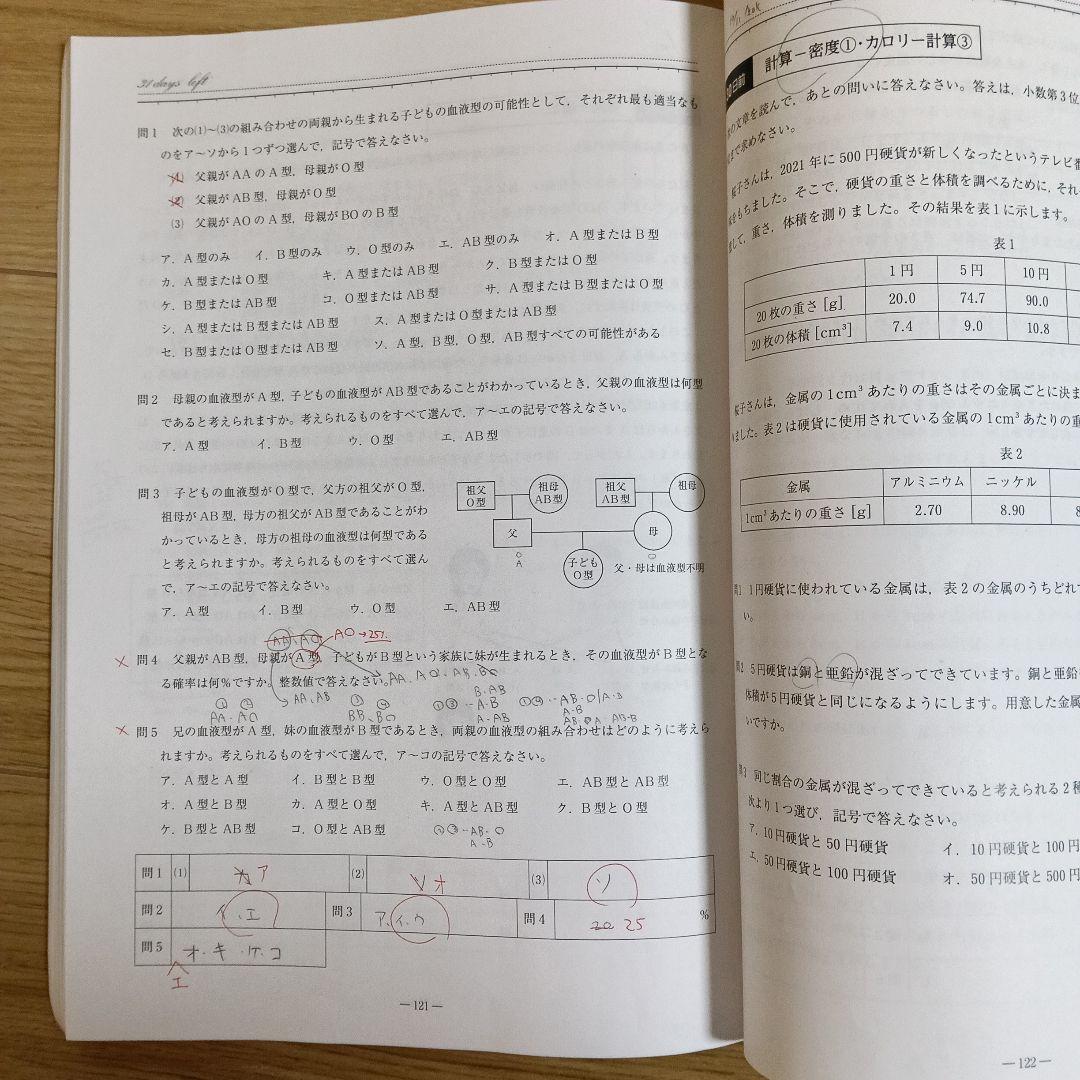 31days left
問1 次の⑴〜⑶の組み合わせの両親から生まれる子どもの血液型の可能性として，それぞれ最も適当なも
のをア〜ソから1つずつ選んで，記号で答えなさい。
⑴ 父親がAAのA型，母親がO型
⑵ 父親がAB型，母親がO型
⑶ 父親がAOのA型，母親がBOのB型
ア．A型のみ イ．B型のみ ウ．O型のみ エ．AB型のみ オ．A型またはB型
カ．A型またはO型 キ．A型またはAB型 ク．B型またはO型
ケ．B型またはAB型 コ．O型またはAB型 サ．A型またはB型またはO型
シ．A型またはB型またはAB型 ス．A型またはO型またはAB型
セ．B型またはO型またはAB型 ソ．A型，B型，O型，AB型すべての可能性がある
問2 母親の血液型がA型，子どもの血液型がAB型であることがわかっているとき，父親の血液型は何型
であると考えられますか。考えられるものをすべて選んで，ア〜エの記号で答えなさい。
ア．A型 イ．B型 ウ．O型 エ．AB型
問3 子どもの血液型がO型で，父方の祖父がO型，
祖母がAB型，母方の祖父がAB型であることがわ
かっているとき，母方の祖母の血液型は何型である
と考えられますか。考えられるものをすべて選ん
で，ア〜エの記号で答えなさい。
ア．A型 イ．B型 ウ．O型 エ．AB型
祖父 O型
祖母 AB型
祖父 AB型
祖母
父
母
O
A
O
子ども O型
父・母は血液型不明
AA、AO AO→25%
問4 父親がAB型，母親がA型，子どもがB型という家族に妹が生まれるとき，その血液型がB型とな
る確率は何％ですか。整数値で答えなさい。
AA、AB
① ② ③ ④
AA・AO BB、BO
問5 兄の血液型がA型，妹の血液型がB型であるとき，両親の血液型の組み合わせはどのように考えら
れますか。考えられるものをすべて選んで，ア〜コの記号で答えなさい。
ア．A型とA型 イ．B型とB型 ウ．O型とO型 エ．AB型とAB型
オ．A型とB型 カ．A型とO型 キ．A型とAB型 ク．B型とO型
ケ．B型とAB型 コ．O型とAB型
①③…AB・O
A・B
問1 ⑴ ア ⑵ オ ⑶ ソ
問2 イ、エ 問3 ア、イ、ウ 問4 20 25 ％
問5 オ・キ・ケ・コ
エ
―121―
計算－密度①・カロリー計算③
の文章を読んで，あとの問いに答えなさい。答えは，小数第3位
まで求めなさい。
桜子さんは，2021年に500円硬貨が新しくなったというテレビ番
をもちました。そこで，硬貨の重さと体積を調べるために，それ
して，重さ，体積を測りました。その結果を表1に示します。
表1
1円 5円 10円
20枚の重さ［g］ 20.0 74.7 90.0
20枚の体積［cm³］ 7.4 9.0 10.8
桜子さんは，金属の1cm³あたりの重さはその金属ごとに決ま
ました。表2は硬貨に使用されている金属の1cm³あたりの重
表2
金属 アルミニウム ニッケル
1cm³あたりの重さ［g］ 2.70 8.90 8
問1 1円硬貨に使われている金属は，表2の金属のうちどれ
い。
問2 5円硬貨は銅と亜鉛が混ざってできています。銅と亜鉛
体積が5円硬貨と同じになるようにします。用意した金属
いですか。
問3 同じ割合の金属が混ざってできていると考えられる2種
次より1つ選び，記号で答えなさい。
ア．10円硬貨と50円硬貨 イ．10円硬貨と100円
エ．50円硬貨と100円硬貨 オ．50円硬貨と500円
―122―